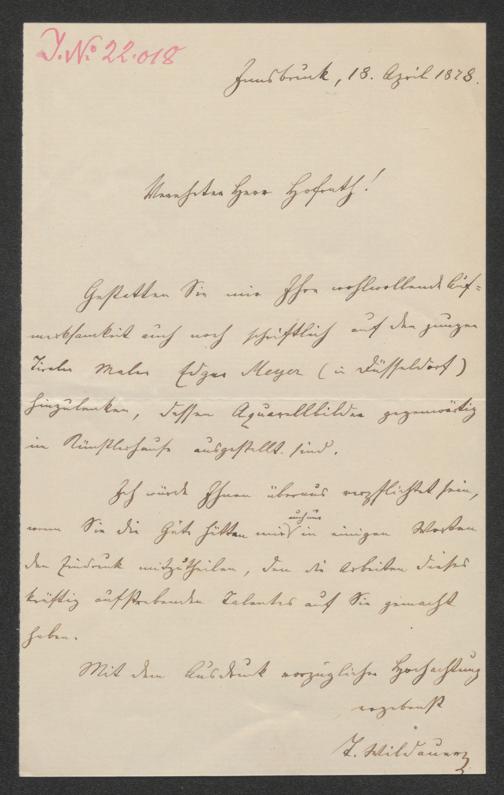 J. No 22.018
Innsbruck, 18. April 1878.
Verehrter Herr Hofrath!
Gestatten Sie mir Ihre wohlwollende Auf=
merksamkeit auch noch schriftlich auf den jungen
Tiroler Maler Edgar Meyer (in Düsseldorf)
hinzulenken, dessen Aquarellbilder gegenwärtig
im Künstlerhause ausgestellt sind.
Ich würde Ihnen überaus verpflichtet sein,
wenn Sie die Güte hätten mir in einigen Worten
den Eindruck mitzutheilen, den die Arbeiten dieses
kräftig aufstrebenden Talentes auf Sie gemacht
haben.
Mit dem Ausdruck vorzüglicher Hochachtung
ergebenst
T. Wildauer